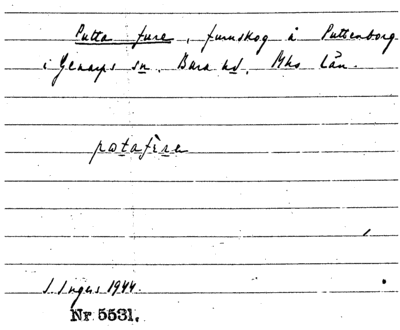 Putta fure, furuskog å Puttenborg
i Genarps sn. Bara hd, Mhs län.
potafìre
I. Ingers 1944.
Nr 5531.